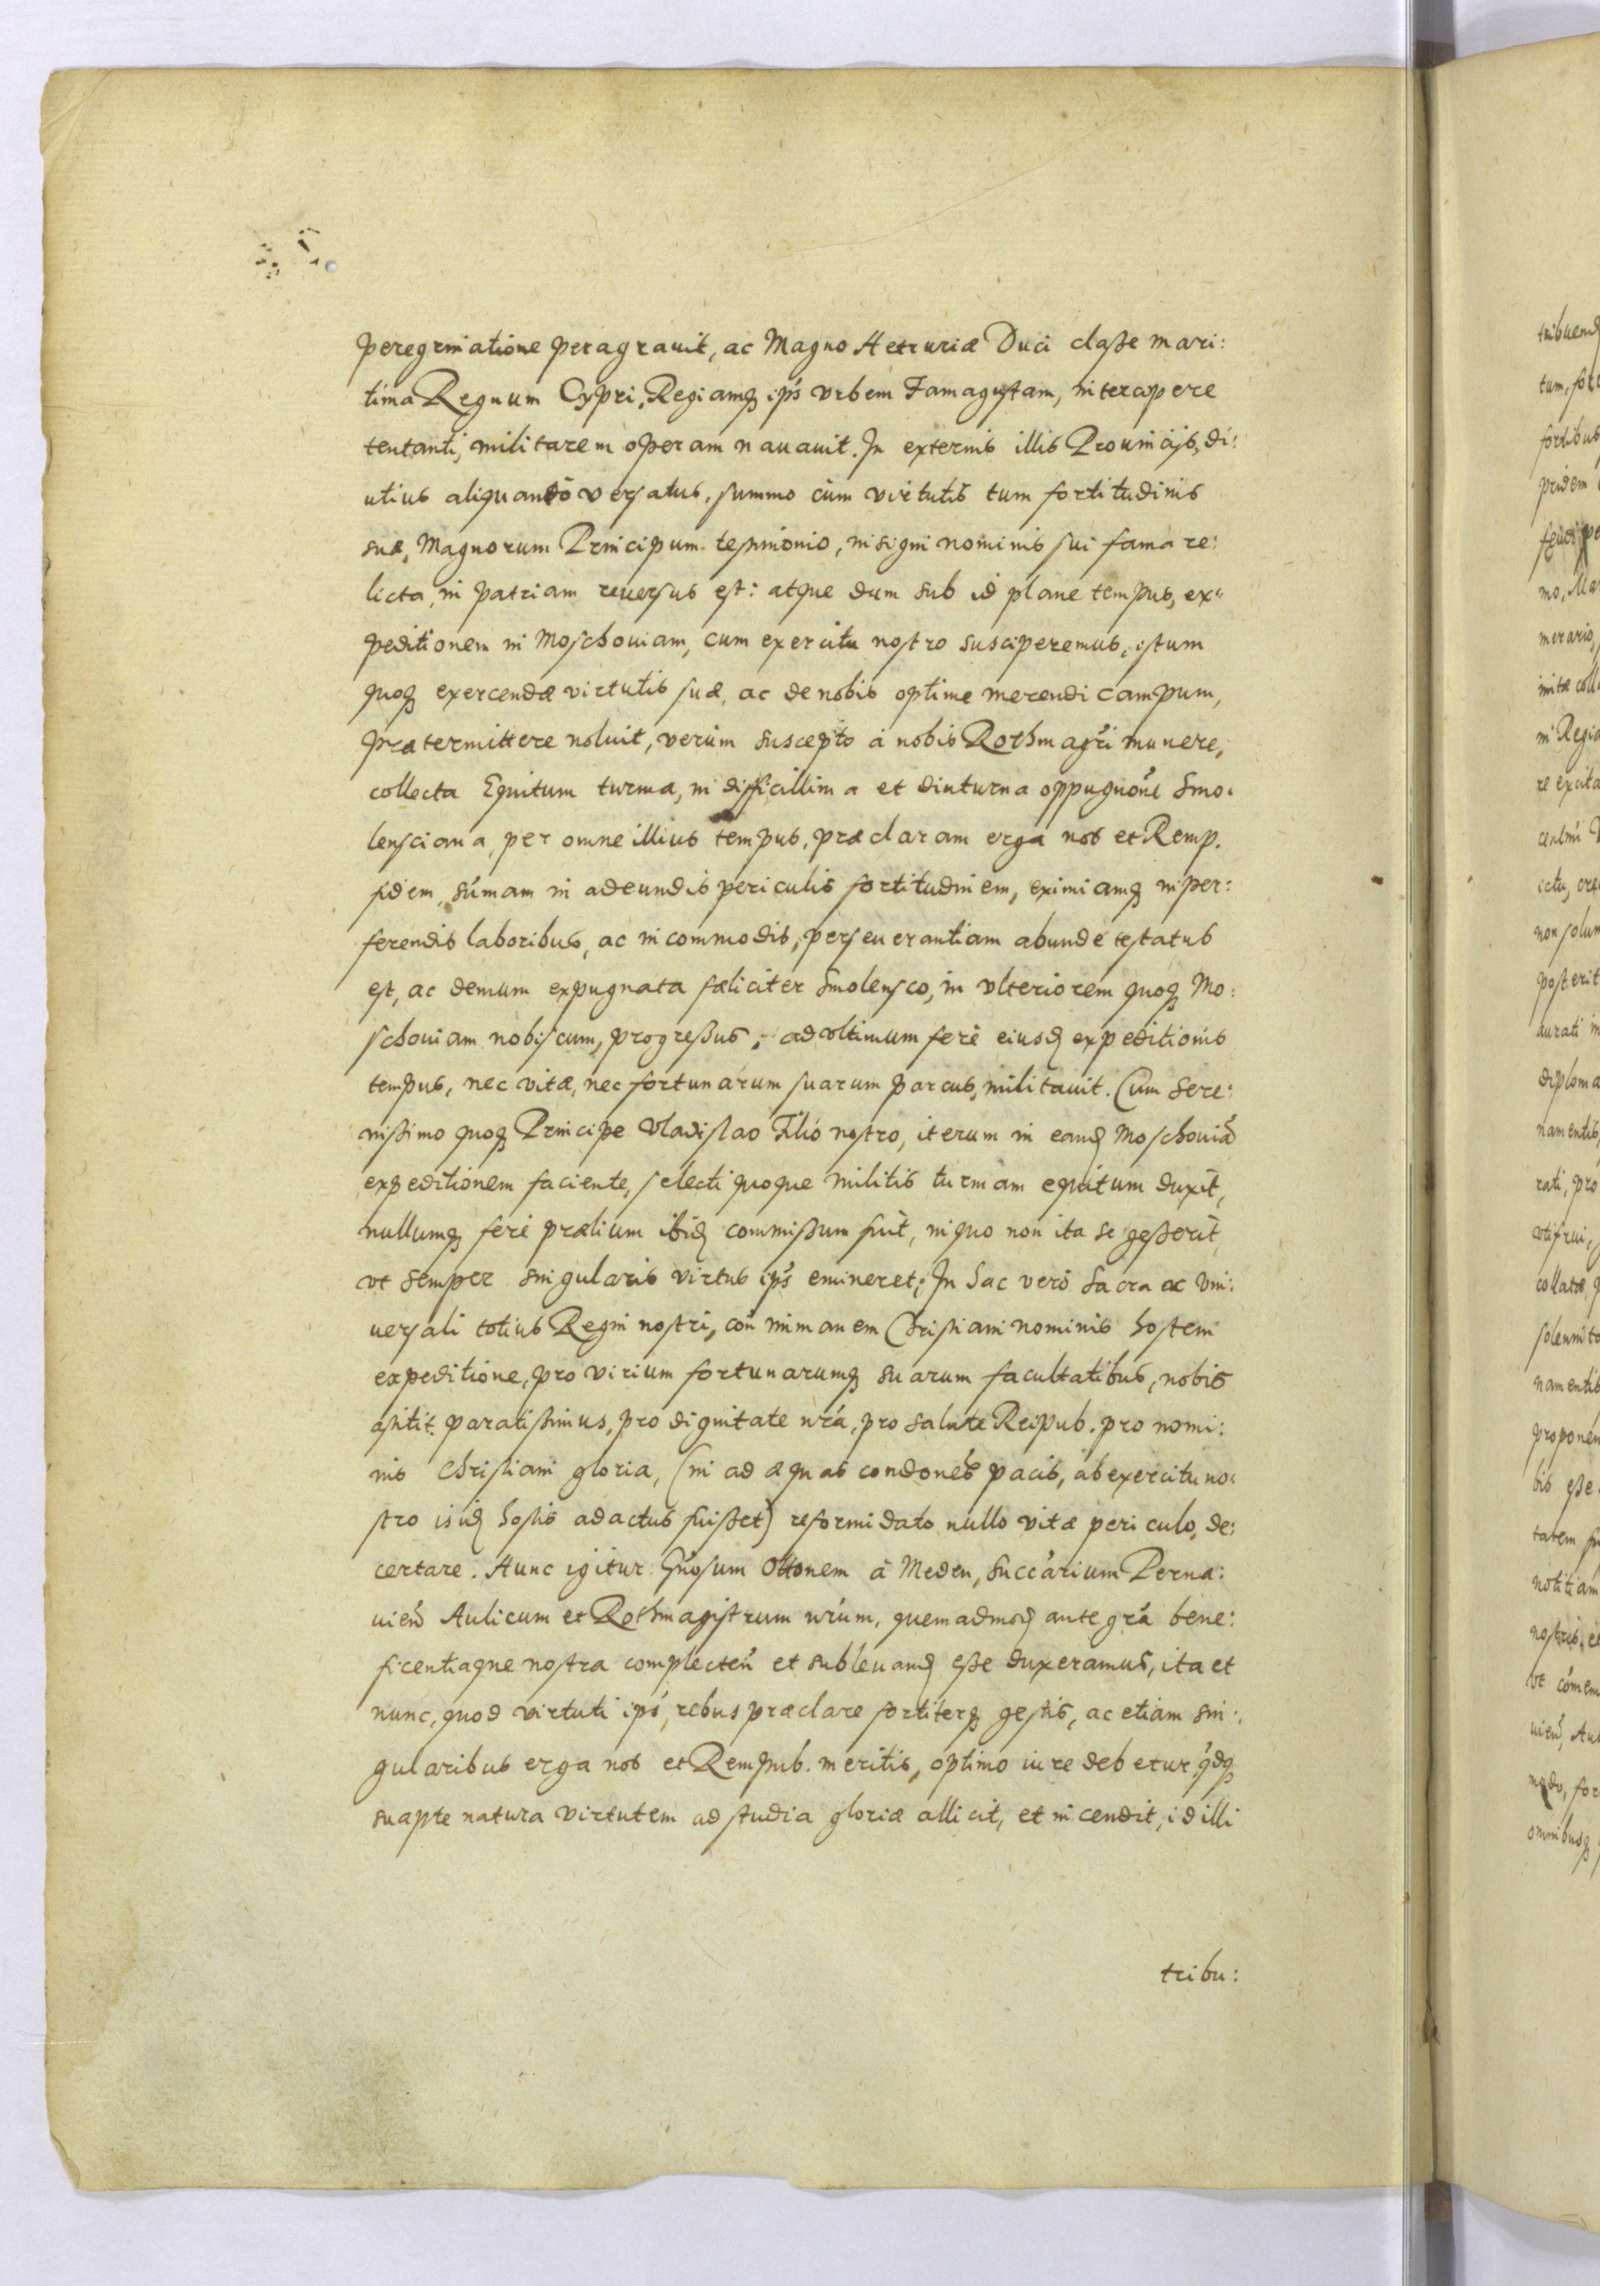 peregrinatione peragrauit, ac Magno Hetruriæ Duci classe mari:
tima Regnum Cypri, Regiamq ips vrbem Famagustam, intercipere
tentanti, militarem operam nauauit. In externis illis Prouincijs, di:
utius aliquandò versatus, summo cùm virtutis tum fortitudinis
suæ, Magnorum Principum testimonio, insigni nominis sui fama re:
licta, in patriam reuersus est: atque dum sub id plane tempus, ex:
peditionem in Moschouiam, cum exercitu nostro susciperemus, istum
quoq exercendæ virtutis suæ, ac de nobis optime merendi campum,
prætermittere noluit, verùm suscepto à nobis Rothmagri munere,
collecta Equitum turma, in difficillima et diuturna oppugnone Smo:
lensciana, per omne illius tempus, præclaram erga nos et Remp.
fidem, sumam in adeundis periculis fortitudinem, eximiamq in per:
ferendis laboribus, ac incommodis, perseuerantiam abundè testatus
est, ac demum expugnata fæliciter Smolensco, in vlteriorem quoq Mo:
schouiam nobiscum, progressus, ad vltimum ferè eiusd expeditionis
tempus, nec vitæ, nec fortunarum suarum parcus, militauit. Cum Sere:
nissimo quoq Principe Vladislao Filio nostro, iterum in eand Moschouiã
expeditionem faciente, selecti quoque militis turmam equitum duxit,
nullumq ferè prælium ibid commissum fuit, in quo non ita se gesserit,
vt semper singularis virtus ips emineret; In hac verò sacra ac vni:
uersali totius Regni nostri, con immanem Christiani nominis hostem
expeditione, pro virium fortunarumq suarum facultatibus, nobis
astitit paratissimus, pro dignitate nra, pro salute Reipub. pro nomi:
nis Christiani gloria, (ni ad æquas condones pacis, ab exercitu no:
stro isid hostis adactus fuisset) reformidato nullo vitæ periculo, de:
certare. Hunc igitur Gnosum Ottonem à Meden, Succarium Perna:
uien Aulicum et Rothmagistrum nrum, quemadmod ante gra bene:
ficentiaque nostra complecten et subleuand esse duxeramus, ita et
nunc, quod virtuti ips, rebus præclare fortiterq gestis, ac etiam sin:
gularibus erga nos et Rempub. meritis, optimo iure debetur, qdq
suapte natura virtutem ad studia gloriæ allicit, et incendit, id illi
tribu: